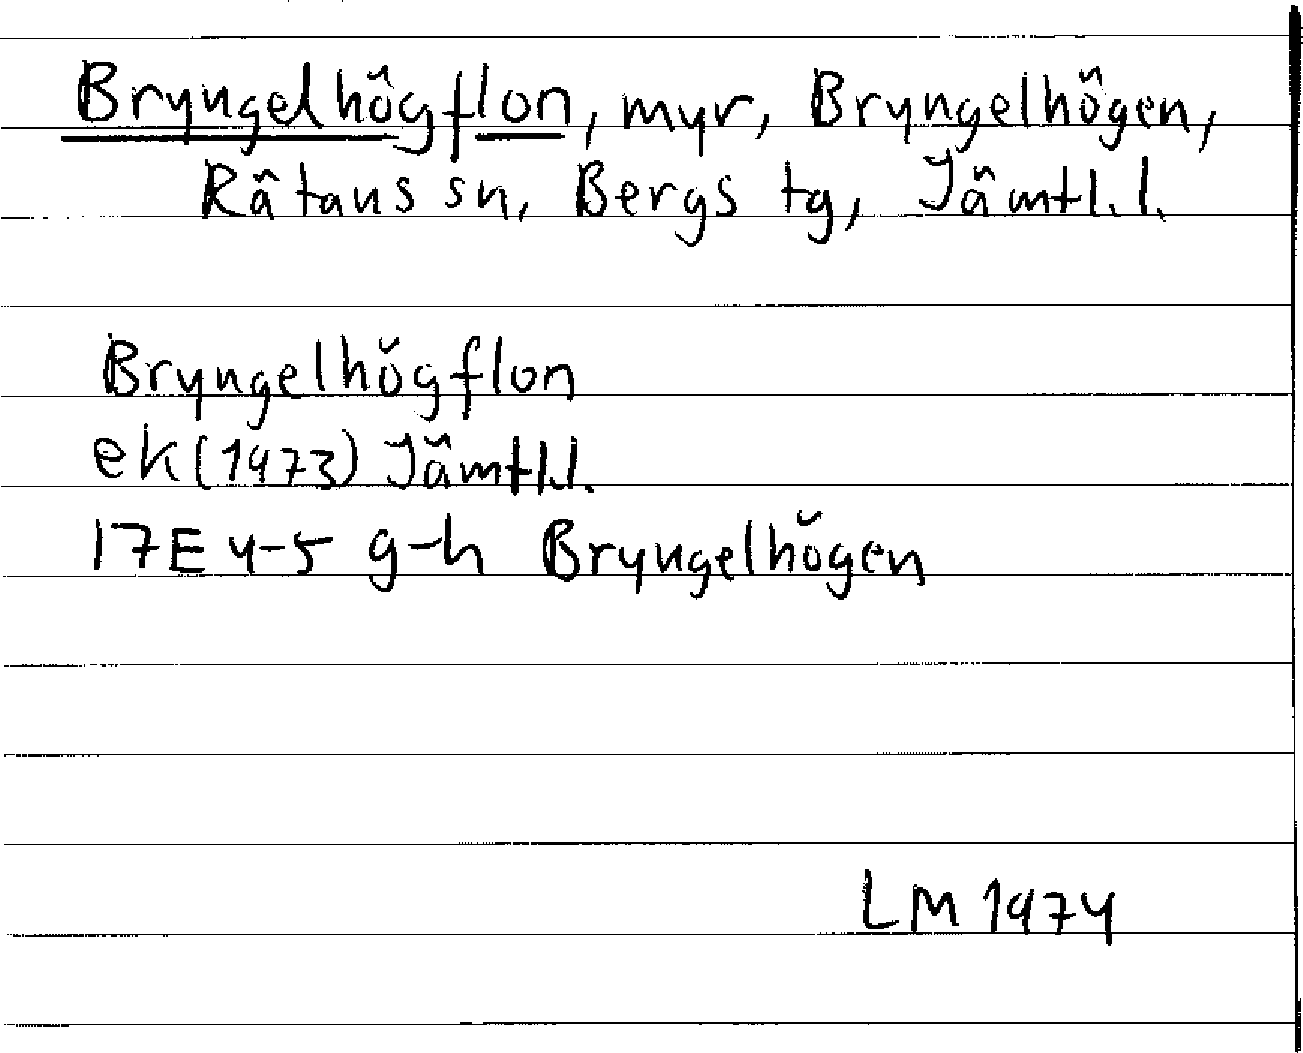 Bryngelhögflon, myr, Bryngelhögen,
Rätans sn, Bergs tg, Jämtl. l.
Bryngelhögflon
ek (1973) Jämtl.l.
17E 4-5 g-h Bryngelhögen
LM 1974